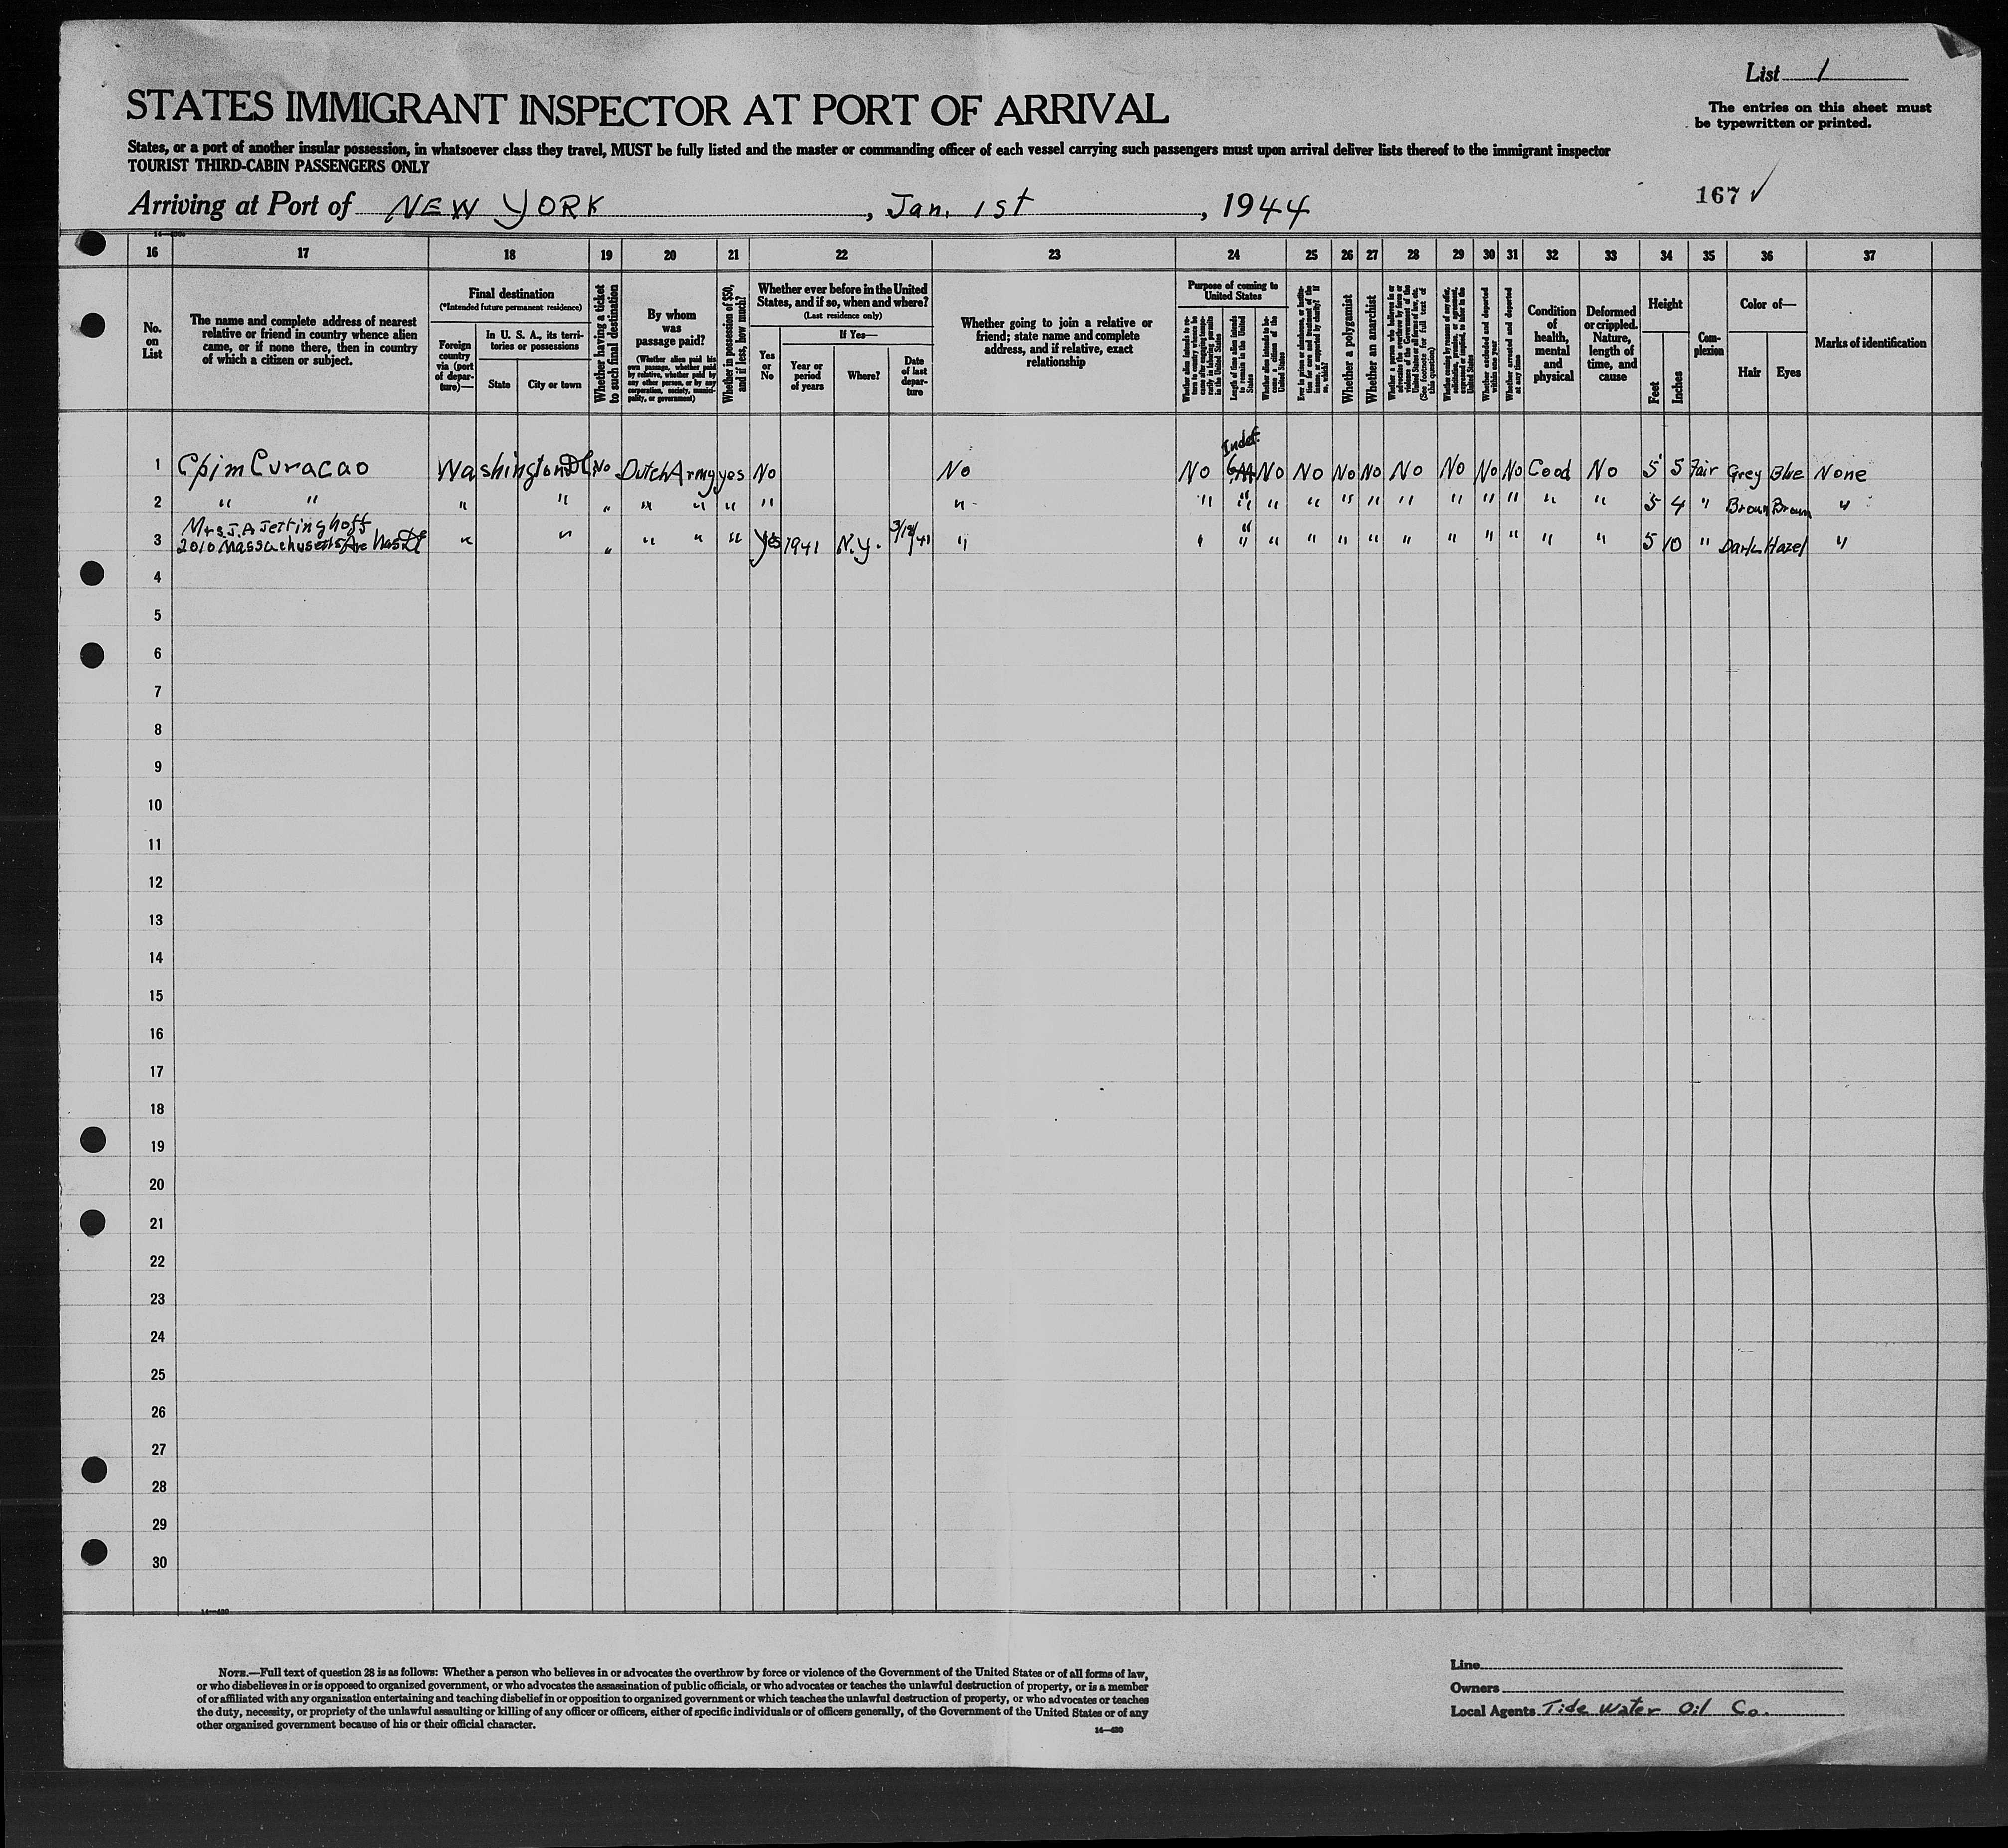 List 1
STATES IMMIGRANT INSPECTOR AT PORT OF ARRIVAL
The entries on this sheet must
be typewritten or printed.
States, or a port of another insular possession, in whatsoever class they travel, MUST be fully listed and the master or commanding officer of each vessel carrying such passengers must upon arrival deliver lists thereof to the immigrant inspector
TOURIST THIRD-CABIN PASSENGERS ONLY
Arriving at Port of NEW YORK, Jan. 1st, 1944
167 ✓
16 17 18 19 20 21 22 23 24 25 26 27 28 29 30 31 32 33 34 35 36 37
No.
on
List
The name and complete address of nearest
relative or friend in country whence alien
came, or if none there, then in country
of which a citizen or subject.
Final destination
(*Intended future permanent residence)
Foreign
country
via (port
of depar-
ture)—
In U. S. A., its terri-
tories or possessions
State
City or town
Whether having a ticket
to such final destination
By whom
was
passage paid?
(Whether alien paid his
own passage, whether paid
by relative, whether paid by
any other person, or by any
corporation, society, munici-
pality, or government)
Whether in possession of $50,
and if less, how much?
Whether ever before in the United
States, and if so, when and where?
(Last residence only)
Yes
or
No
If Yes—
Year or
period
of years
Where?
Date
of last
depar-
ture
Whether going to join a relative or
friend; state name and complete
address, and if relative, exact
relationship
Purpose of coming to
United States
Length of time alien intends
to remain in the United
States
Whether alien intends to be-
come a citizen of the
United States
Whether a polygamist
Whether an anarchist
Whether arrested and deported
at any time
Condition
of
health,
mental
and
physical
Deformed
or crippled.
Nature,
length of
time, and
cause
Height
Feet
Inches
Com-
plexion
Color of—
Hair
Eyes
Marks of identification
Indef.
1 Cpim Curacao Washington DC No Dutch Army yes No No No No No No No No No No No Good No 5 5 Fair Grey Blue None
2 " " " " " " " " " " " " " " " " " " " " " " " 5 4 " Brown Brown "
Mrs J.A Jettinghoff
3 2010 Massachusetts Ave Was DC " " " " " " yes 1941 N.Y. 3/19/41 " " " " " " " " " " " " " 5 10 " Dark Hazel "
4
5
6
7
8
9
10
11
12
13
14
15
16
17
18
19
20
21
22
23
24
25
26
27
28
29
30
14—430
NOTE.—Full text of question 28 is as follows: Whether a person who believes in or advocates the overthrow by force or violence of the Government of the United States or of all forms of law,
or who disbelieves in or is opposed to organized government, or who advocates the assassination of public officials, or who advocates or teaches the unlawful destruction of property, or is a member
of or affiliated with any organization entertaining and teaching disbelief in or opposition to organized government or which teaches the unlawful destruction of property, or who advocates or teaches
the duty, necessity, or propriety of the unlawful assaulting or killing of any officer or officers, either of specific individuals or of officers generally, of the Government of the United States or of any
other organized government because of his or their official character.
14—430
Line
Owners
Local Agents Tide Water Oil Co.